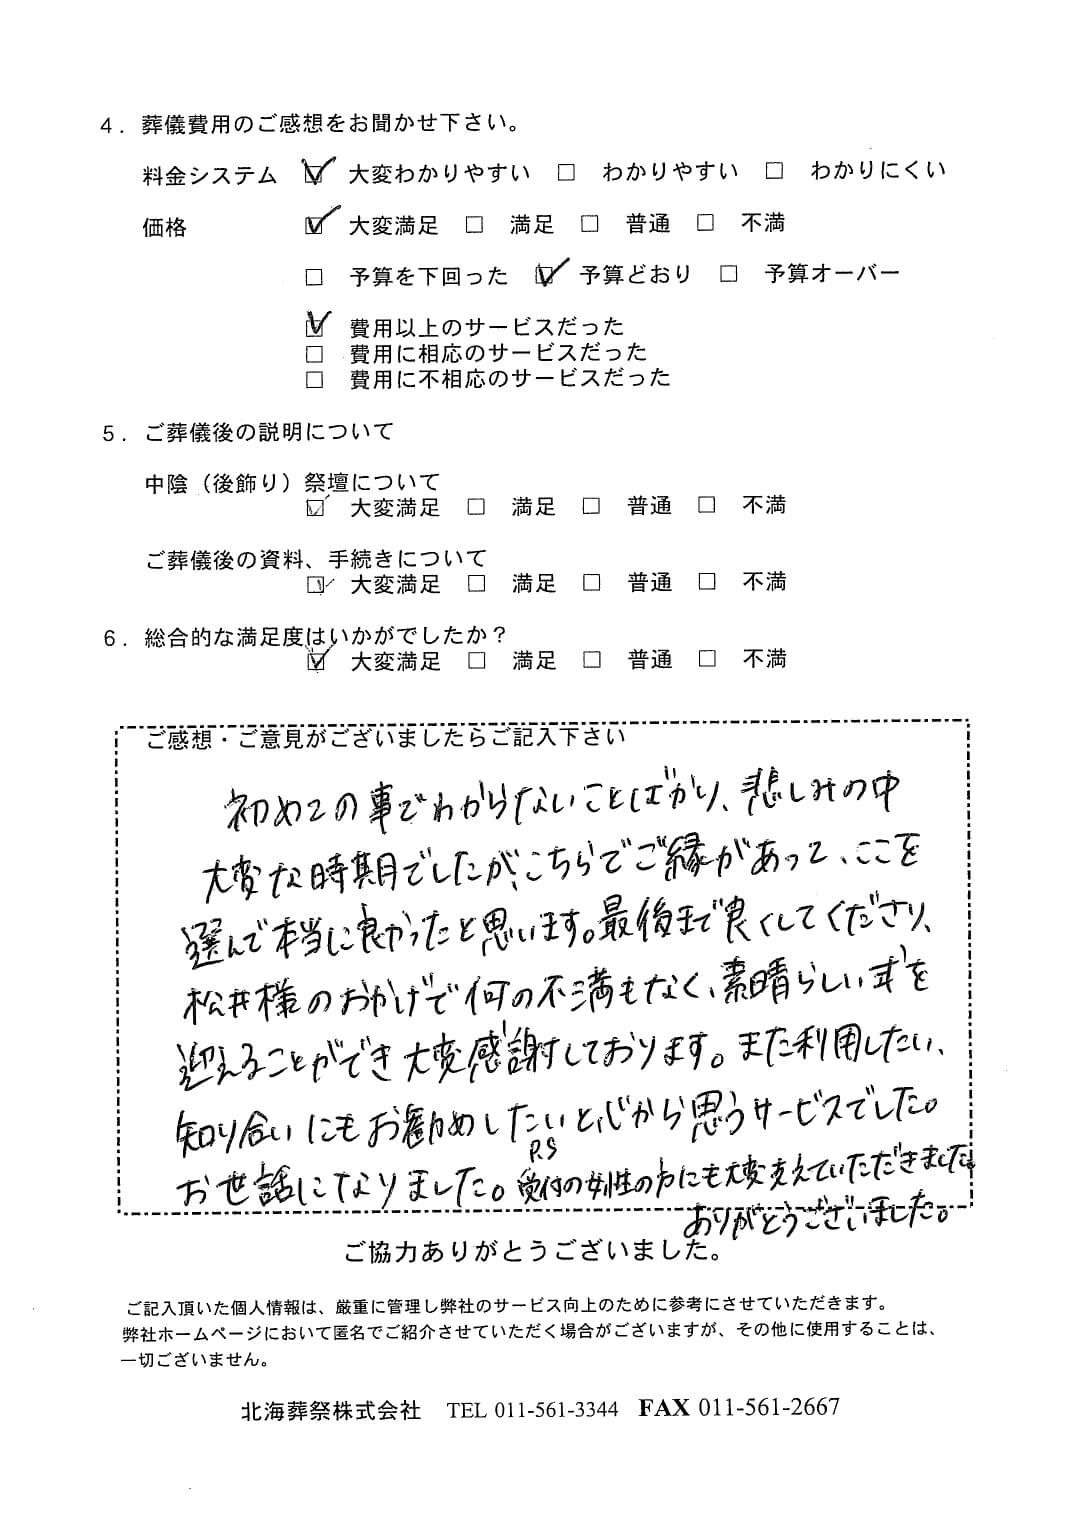 4．葬儀費用のご感想をお聞かせ下さい。
料金システム ☑ 大変わかりやすい □ わかりやすい □ わかりにくい
価格 ☑ 大変満足 □ 満足 □ 普通 □ 不満
□ 予算を下回った ☑ 予算どおり □ 予算オーバー
☑ 費用以上のサービスだった
□ 費用に相応のサービスだった
□ 費用に不相応のサービスだった
5．ご葬儀後の説明について
中陰（後飾り）祭壇について
☑ 大変満足 □ 満足 □ 普通 □ 不満
ご葬儀後の資料、手続きについて
☑ 大変満足 □ 満足 □ 普通 □ 不満
6．総合的な満足度はいかがでしたか？
☑ 大変満足 □ 満足 □ 普通 □ 不満
ご感想・ご意見がございましたらご記入下さい
初めての事でわからないことばかり、悲しみの中
大変な時期でしたが、こちらでご縁があって、ここを
選んで本当に良かったと思います。最後まで良くしてくださり、
松井様のおかげで何の不満もなく、素晴らしい式を
迎えることができ大変感謝しております。また利用したい、
知り合いにもお勧めしたいと心から思うサービスでした。
お世話になりました。P.S 受付の女性の方にも大変支えていただきました。
ありがとうございました。
ご協力ありがとうございました。
ご記入頂いた個人情報は、厳重に管理し弊社のサービス向上のために参考にさせていただきます。
弊社ホームページにおいて匿名でご紹介させていただく場合がございますが、その他に使用することは、
一切ございません。
北海葬祭株式会社 TEL 011-561-3344 FAX 011-561-2667